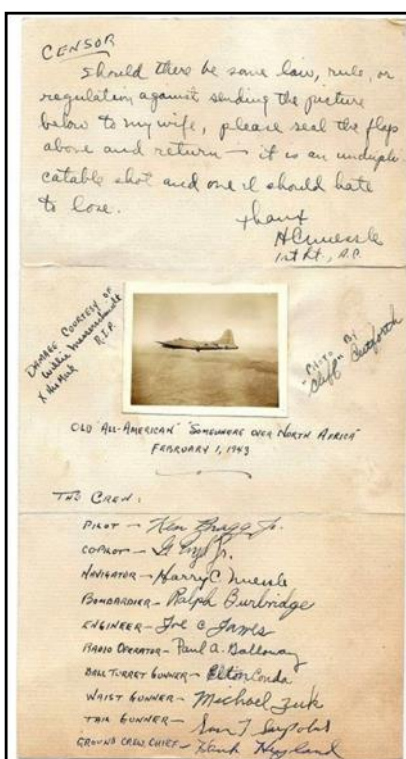 CENSOR
Should there be some law, rule, or
regulation against sending the picture
below to my wife, please seal the flaps
above and return — it is an undupli-
catable shot and one I should hate
to lose.
Thanx
HCNuessle
1st Lt., A.C.
DAMAGE COURTESY OF
Willie Messerschmidt
R.I.P.
X His Mark
"PHOTO" BY
"Cliff" Cutforth
OLD "ALL-AMERICAN" "SOMEWHERE OVER NORTH AFRICA"
FEBRUARY 1, 1943
THE CREW:
PILOT — Ken Bragg Jr.
COPILOT — G Engel Jr.
NAVIGATOR — Harry C. Nuessle
BOMBARDIER — Ralph Burbridge
ENGINEER — Joe C James
RADIO OPERATOR — Paul A. Galloway
BALL TURRET GUNNER — Elton Conda
WAIST GUNNER — Michael Zuk
TAIL GUNNER — Sam T Sarpolus
GROUND CREW CHIEF — Hank Hyland